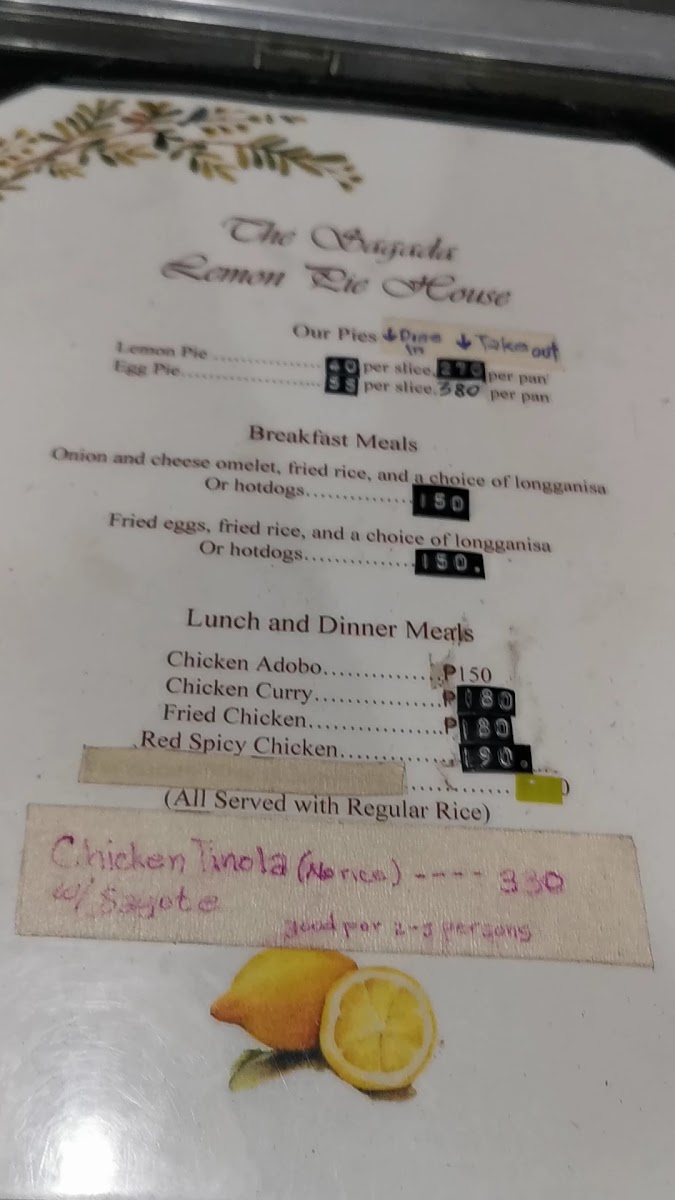 The Sagada
Lemon Pie House
Our Pies ↓ Dine in ↓ Takeout
Lemon Pie .................... per slice, 270 per pan
Egg Pie........................ per slice. 380 per pan
Breakfast Meals
Onion and cheese omelet, fried rice, and a choice of longganisa
Or hotdogs................ 150
Fried eggs, fried rice, and a choice of longganisa
Or hotdogs................ 150.
Lunch and Dinner Meals
Chicken Adobo................₱150
Chicken Curry.................₱180
Fried Chicken..................₱180
Red Spicy Chicken............. 190.
(All Served with Regular Rice)
Chicken Tinola (No rice) ---- 330
w/ Sayote
good por 2-3 persons